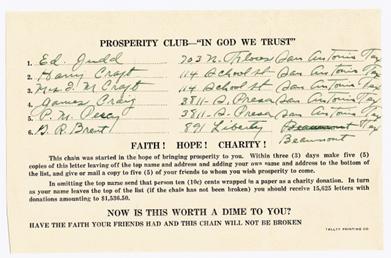 PROSPERITY CLUB—"IN GOD WE TRUST"
1. Ed. Judd 703 N. Flores San Antonio Tex
2. Harry Craft 114 School st San Antonio Tex
3. Mrs. I. N Craft 114 School st San Antonio Tex
4. James Craig 3811-S. Presa San Antonio Tex
5. P. M. 3811-S. Presa San Antonio Tex
6. B. R. Brent 891 Liberty Beaumont Tex
Beaumont
FAITH! HOPE! CHARITY!
This chain was started in the hope of bringing prosperity to you. Within three (3) days make five (5)
copies of this letter leaving off the top name and address and adding your own name and address to the bottom
of the list, and give or mail a copy to five (5) of your friends to whom you wish prosperity to come.
In omitting the top name send that person ten (10c) cents wrapped in a paper as a charity donation. In turn
as your name leaves the top of the list (if the chain has not been broken) you should receive 15,625 letters with
donations amounting to $1,536.50.
NOW IS THIS WORTH A DIME TO YOU?
HAVE THE FAITH YOUR FRIENDS HAD AND THIS CHAIN WILL NOT BE BROKEN
TALLEY PRINTING CO.